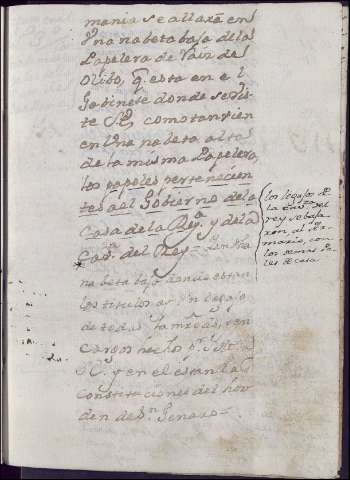 mania se allaxà en
Una nabeta baja de la
Papelera de Rair de
Olibo, q. esta en el
Gabinete donde se Vis
te S.E. como tanvien
en Una nabeta alta
de la misma Papelera,
los papeles pertenecien
tes al Gobierno de la
Casa de la Rey.a y de la
Cav.za del Rey = en Una
nabeta bajo donde estan
los titulos ay Un legajo
de todas
cargos hechos p.r
S.E. y en el estan las
Constituciones del hor
den de S.n Genaro =
los legajos de
la Cav.za del
rey se baja
ron al Ar
mario, con
los demas pa
les de casa